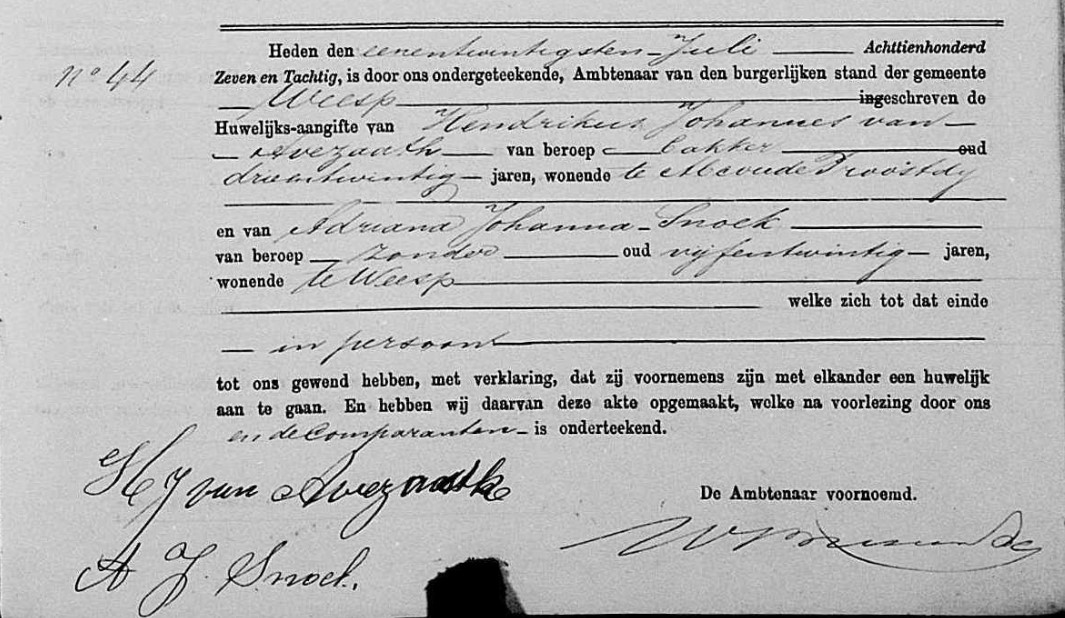 Heden den eenentwintigsten Juli Achttienhonderd
No 44
Zeven en Tachtig, is door ons ondergeteekende, Ambtenaar van den burgerlijken stand der gemeente
Weesp ingeschreven de
Huwelijks-aangifte van Hendrikus Johannes van
Avezaath van beroep bakker oud
drieentwintig jaren, wonende te
en van Adriana Johanna Snoek
van beroep zonder oud vijfentwintig jaren,
wonende te Weesp
welke zich tot dat einde
in persoon
tot ons gewend hebben, met verklaring, dat zij voornemens zijn met elkander een huwelijk
aan te gaan. En hebben wij daarvan deze akte opgemaakt, welke na voorlezing door ons
en de Comparanten is onderteekend.
H J van Avezaath
De Ambtenaar voornoemd.
A J. Snoek.